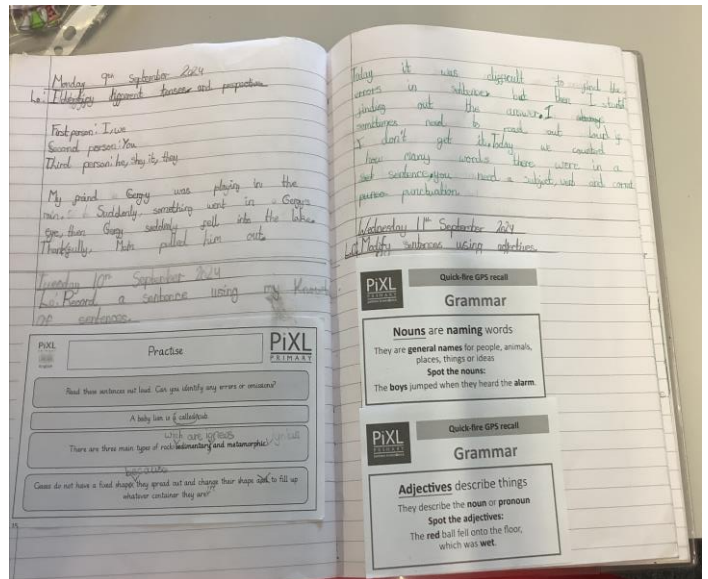 Monday 9th September 2024
Lo: Identify different tenses and perspective
First person: I, we
Second person: You
Third person: he, she, it, they
My friend Gergy was playing in the
rain. Suddenly, something went in Gergys
eye, then Gergy suddenly fell into the lake.
Thankfully, Mate pulled him out.
Tuesday 10th September 2024
Lo: Record, a sentence using my
of sentences.
PiXL
PRIMARY
Practise
PiXL
PRIMARY
Read these sentences out loud. Can you identify any errors or omissions?
A baby lion is called cub.
which are igneous
There are three main types of rock sedimentary and metamorphic
because
Gases do not have a fixed shape they spread out and change their shape to fill up
whatever container they are
Today it was difficult to find the
errors in but then I started
finding out the answer. I
sometimes need to read out loud if
I don't get it. Today we counted
how many words there were in a
sentence, you need a subject, verb and correct
punctuation.
Wednesday 11th September 2024
Lo: Modify sentences using adjectives.
PiXL
PRIMARY
Quick-fire GPS recall
Grammar
Nouns are naming words
They are general names for people, animals,
places, things or ideas
Spot the nouns:
The boys jumped when they heard the alarm.
PiXL
PRIMARY
Quick-fire GPS recall
Grammar
Adjectives describe things
They describe the noun or pronoun
Spot the adjectives:
The red ball fell onto the floor,
which was wet.